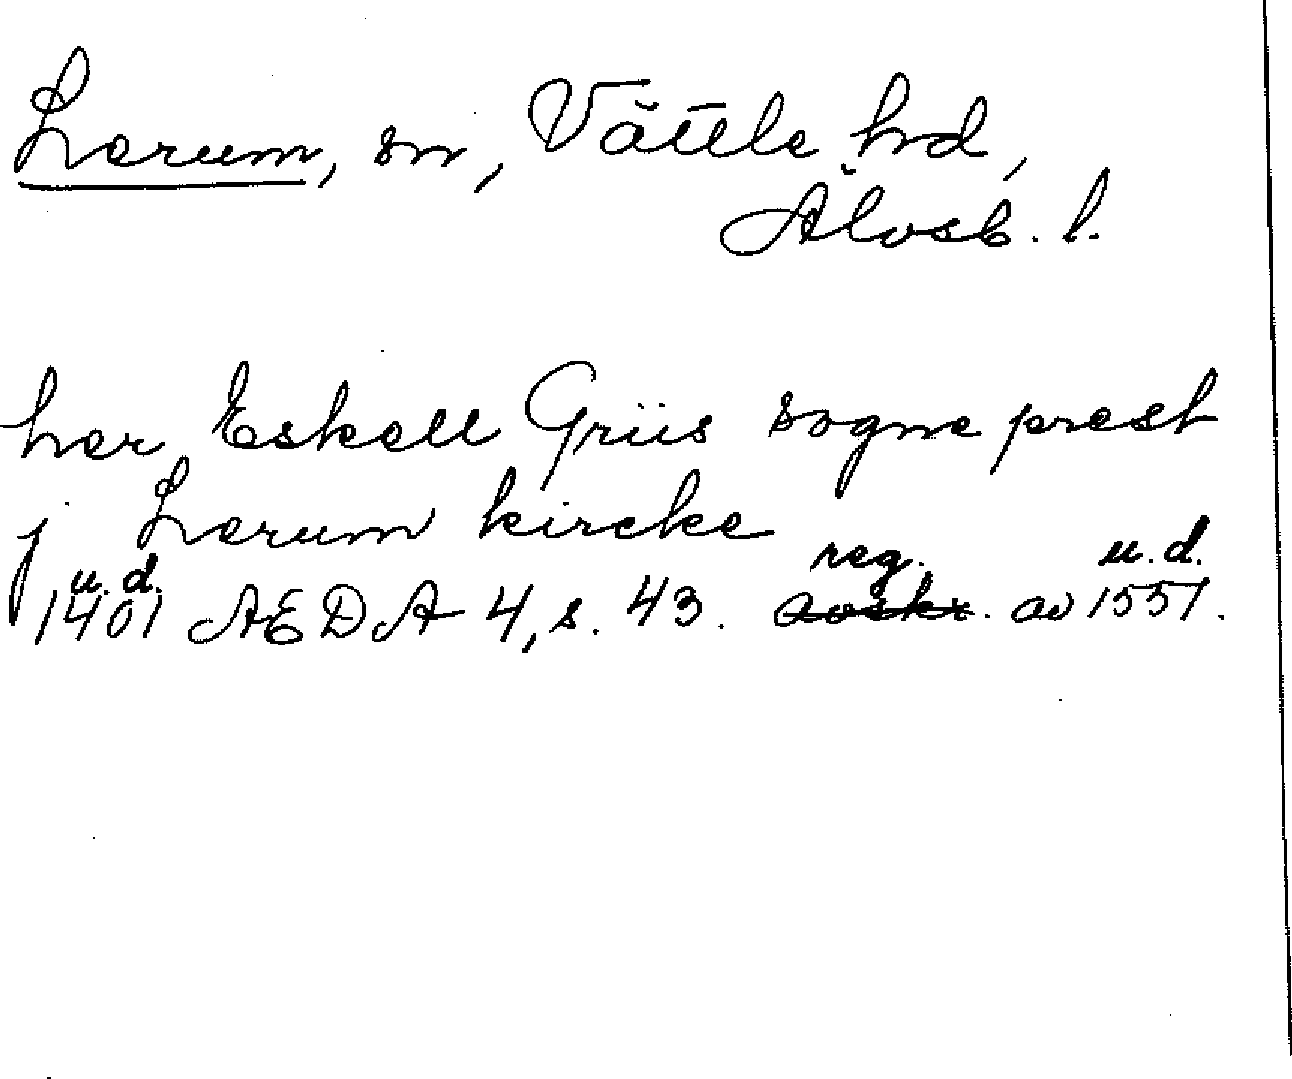 Lerum, sn, Vättle hd,
Älvsb. l.
her Eskell Griis sogneprest
j Lerum kircke
u. d. reg. u. d.
1401 AEDA 4, s. 43. avskr. av 1551.